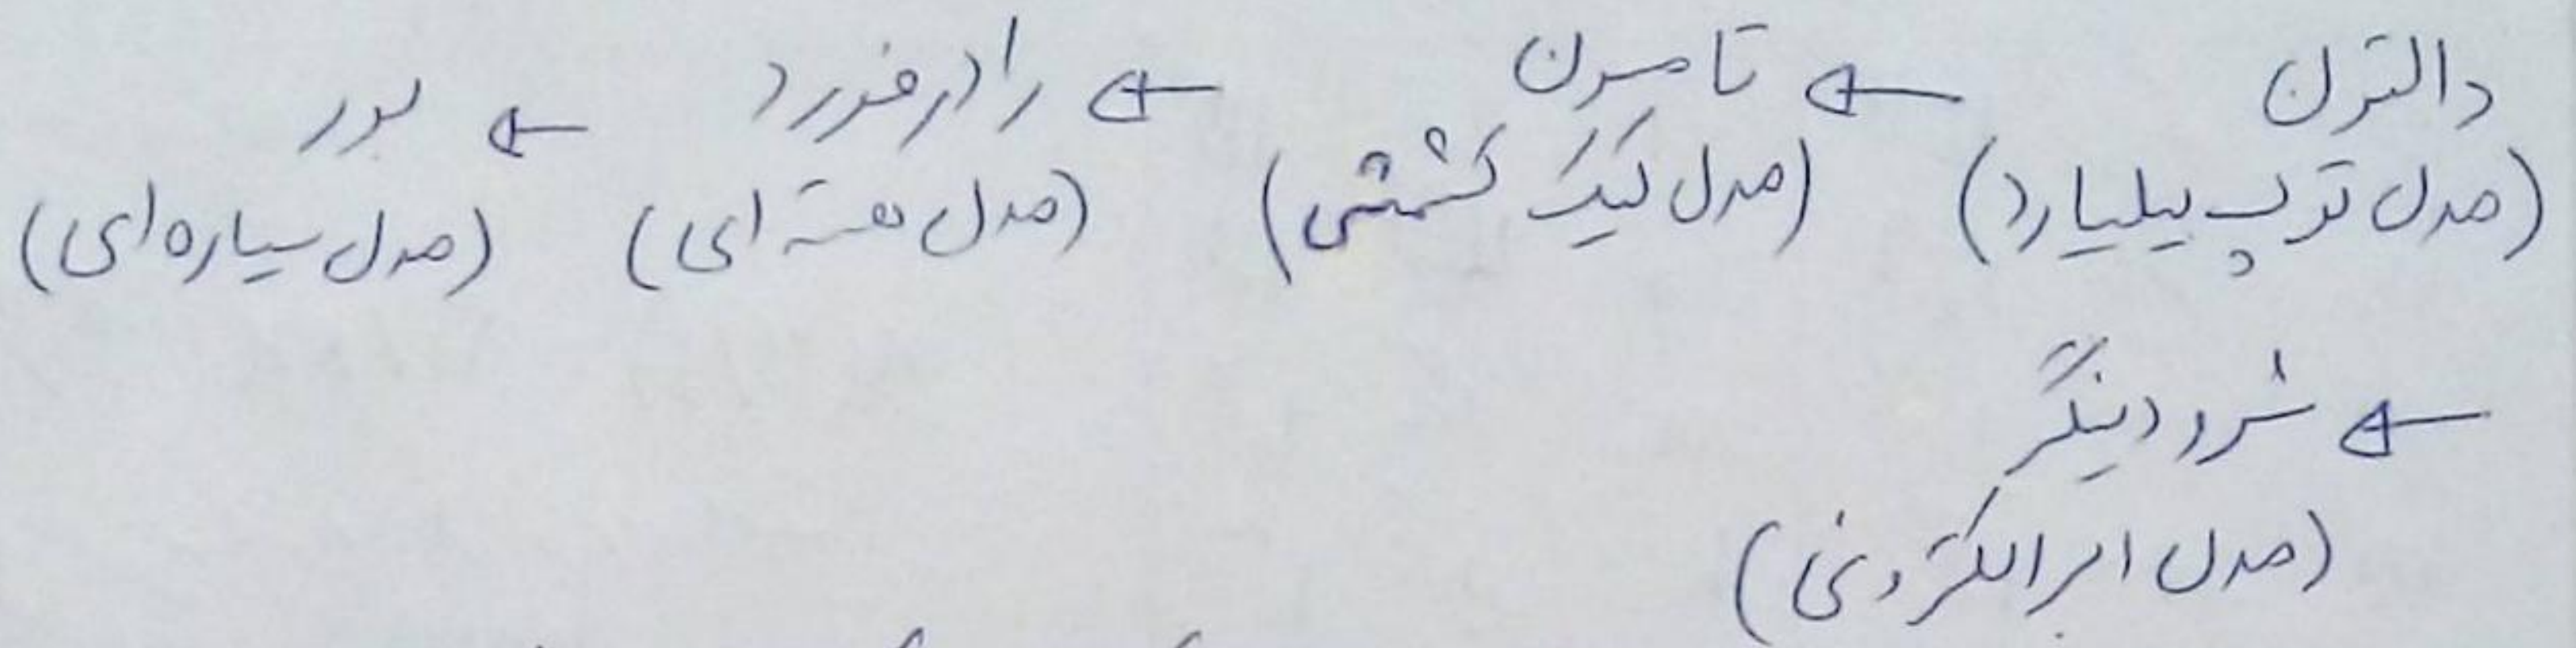 دالتون ← تامسون ← رادرفورد ← بور
(مدل توپ بیلیارد) (مدل کیک کشمشی) (مدل هسته ای) (مدل سیاره ای)
← شرودینگر
(مدل ابر الکترونی)